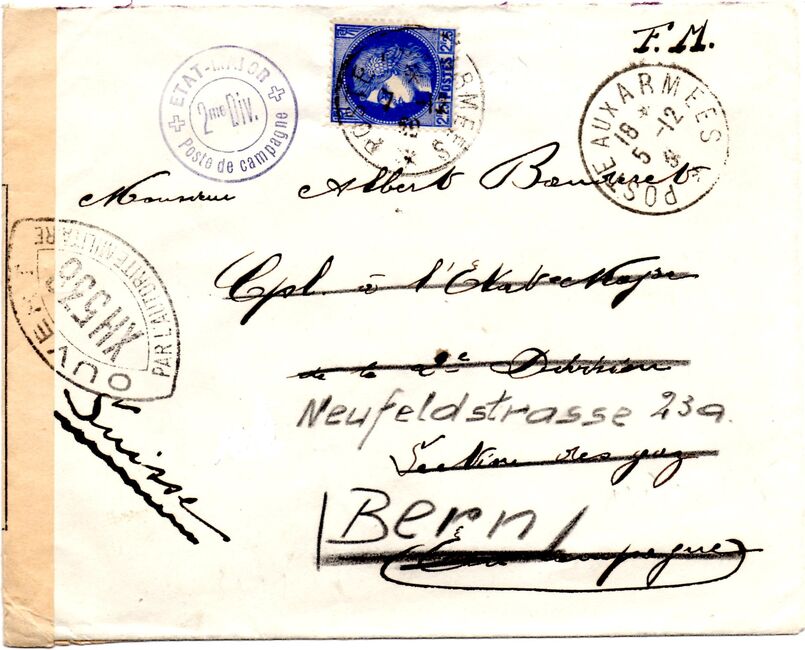 F.M.
ETAT-MAJOR
2me Div.
Poste de campagne
POSTES 2F25
POSTE AUX ARMEES
POSTE AUX ARMEES
18
5-12
Monsieur Albert
Cpl. à l'Etat-Major
de la 2e Division
Neufeldstrasse 23a.
Section des gaz
Bern
En campagne
Suisse
OUVERT
PAR L'AUTORITE MILITAIRE
XH530